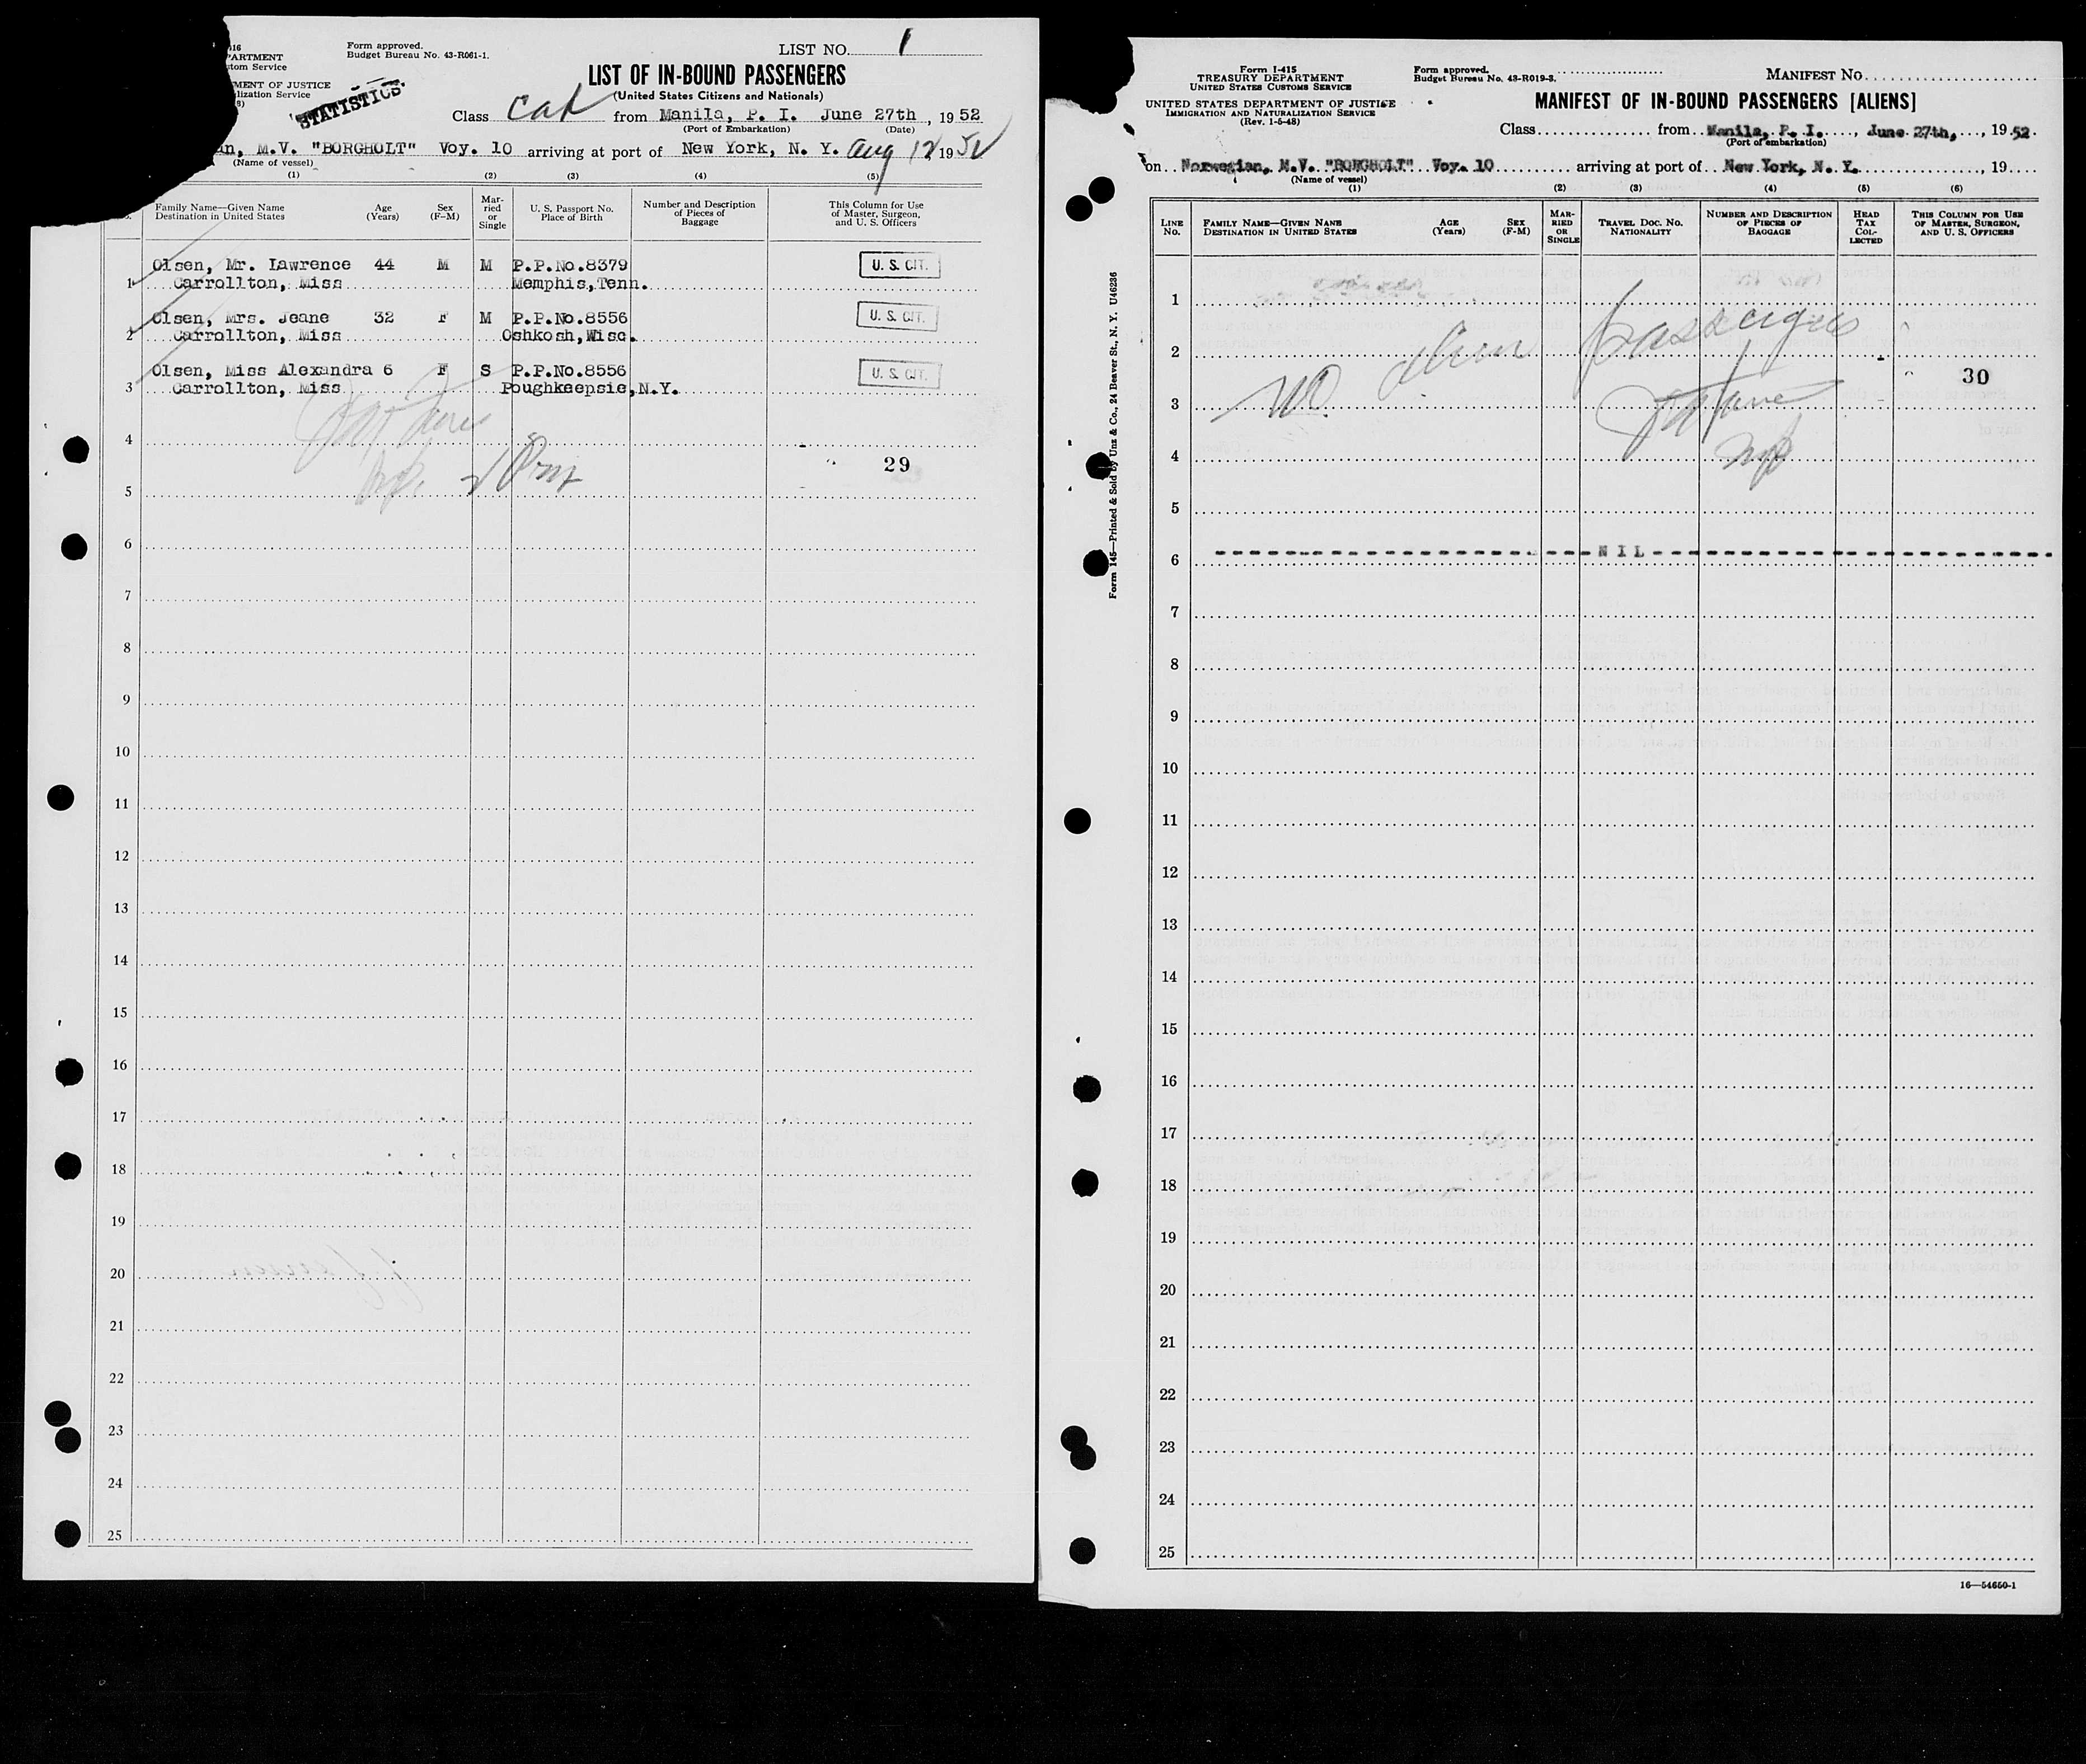 16
PARTMENT
tom Service
MENT OF JUSTICE
lization Service
8)
Form approved.
Budget Bureau No. 43-R061-1.
STATISTICS
LIST NO. 1
LIST OF IN-BOUND PASSENGERS
(United States Citizens and Nationals)
Class from Manila, P. I. June 27th, 1952
(Port of Embarkation) (Date)
an, M.V. "BORGHOLT" Voy. 10 arriving at port of New York, N. Y. Aug 12 1952
(Name of vessel)
(1) (2) (3) (4) (5)
Family Name—Given Name Destination in United States
Age (Years)
Sex (F-M)
Mar-ried or Single
U. S. Passport No. Place of Birth
Number and Description of Pieces of Baggage
This Column for Use of Master, Surgeon, and U. S. Officers
Olsen, Mr. Lawrence 44 M M P.P.No.8379 U. S. CIT.
1 Carrollton, Miss Memphis,Tenn.
Olsen, Mrs. Jeane 32 F M P.P.No.8556 U. S. CIT.
2 Carrollton, Miss Oshkosh,Wisc.
Olsen, Miss Alexandra 6 F S P.P.No.8556 U. S. CIT.
3 Carrollton, Miss Poughkeepsie,N.Y.
4
29
5
6
7
8
9
10
11
12
13
14
15
16
17
18
19
20
21
22
23
24
25
Form I-415
TREASURY DEPARTMENT
UNITED STATES CUSTOMS SERVICE
UNITED STATES DEPARTMENT OF JUSTICE
IMMIGRATION AND NATURALIZATION SERVICE
(Rev. 1-5-48)
Form approved.
Budget Bureau No. 43-R019-3.
MANIFEST NO.
MANIFEST OF IN-BOUND PASSENGERS [ALIENS]
Class from Manila, P. I., June 27th, 1952.
(Port of embarkation)
on Norwegian, M.V. "BORGHOLT" Voy. 10 arriving at port of New York, N. Y., 19
(Name of vessel)
(1) (2) (3) (4) (5) (6)
LINE No.
FAMILY NAME—GIVEN NAME DESTINATION IN UNITED STATES
AGE (Years)
SEX (F-M)
MAR-RIED OR SINGLE
TRAVEL DOC. NO. NATIONALITY
NUMBER AND DESCRIPTION OF PIECES OF BAGGAGE
HEAD TAX COL-LECTED
THIS COLUMN FOR USE OF MASTER, SURGEON, AND U. S. OFFICERS
Form 145—Printed & Sold by Unz & Co., 24 Beaver St., N. Y. U46236
1
2
No alien passengers
30
3
4
5
NIL
6
7
8
9
10
11
12
13
14
15
16
17
18
19
20
21
22
23
24
25
16—54650-1